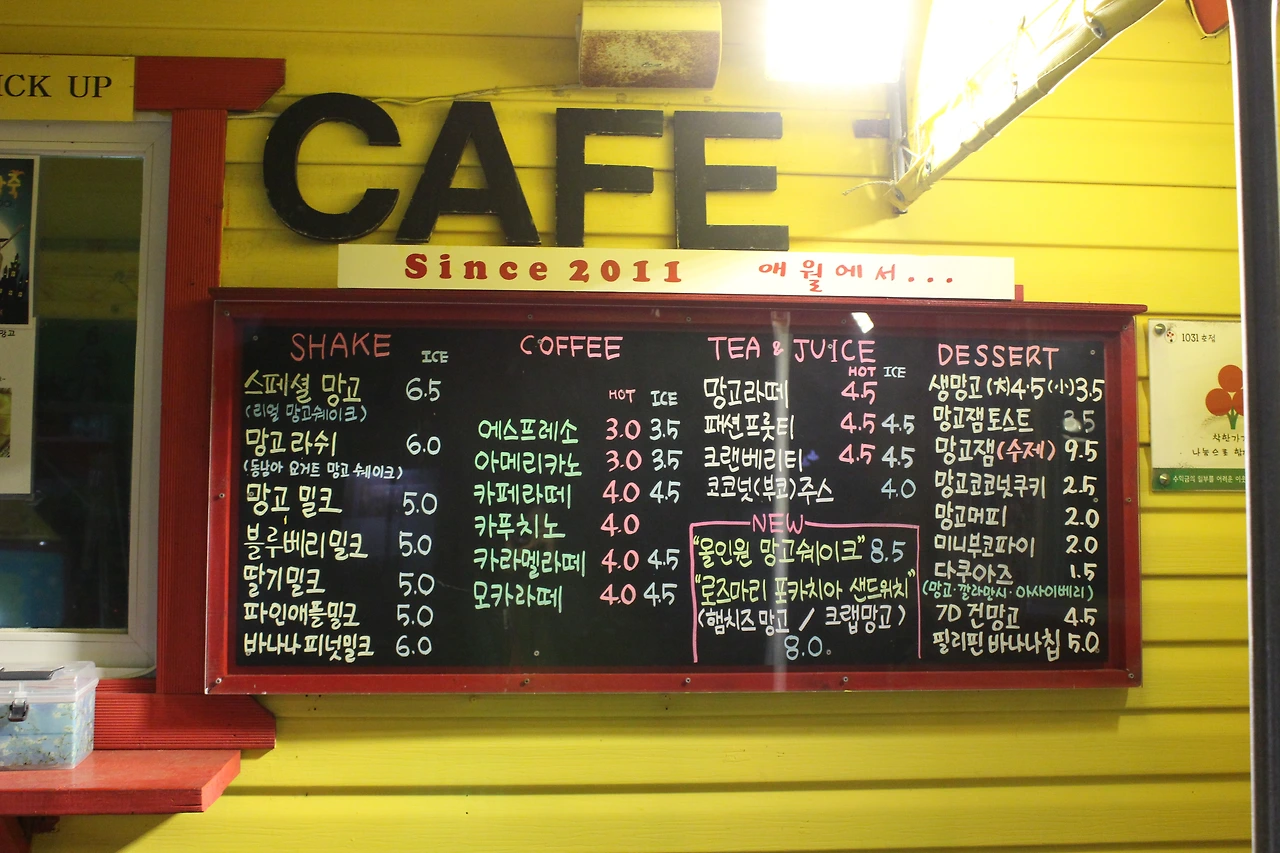 ICK UP
CAFE
Since 2011 애월에서...
SHAKE
ICE
스페셜 망고 6.5
(리얼 망고쉐이크)
망고 라쉬 6.0
(동남아 요거트 망고 쉐이크)
망고 밀크 5.0
블루베리밀크 5.0
딸기밀크 5.0
파인애플밀크 5.0
바나나피넛밀크 6.0
COFFEE
HOT ICE
에스프레소 3.0 3.5
아메리카노 3.0 3.5
카페라떼 4.0 4.5
카푸치노 4.0
카라멜라떼 4.0 4.5
모카라떼 4.0 4.5
TEA & JUICE
HOT ICE
망고라떼 4.5
패션프룻티 4.5 4.5
크랜베리티 4.5 4.5
코코넛(부코)주스 4.0
NEW
"올인원 망고쉐이크" 8.5
"로즈마리 포카치아 샌드위치"
(햄치즈망고 / 크랩망고)
8.0.
DESSERT
생망고 (大)4.5 (小)3.5
망고잼토스트 3.5
망고잼(수제) 9.5
망고코코넛쿠키 2.5
망고머피 2.0
미니부코파이 2.0
다쿠아즈 1.5
(망고·깔라만시·아사이베리)
7D 건망고 4.5
필리핀 바나나칩 5.0
1031 호점